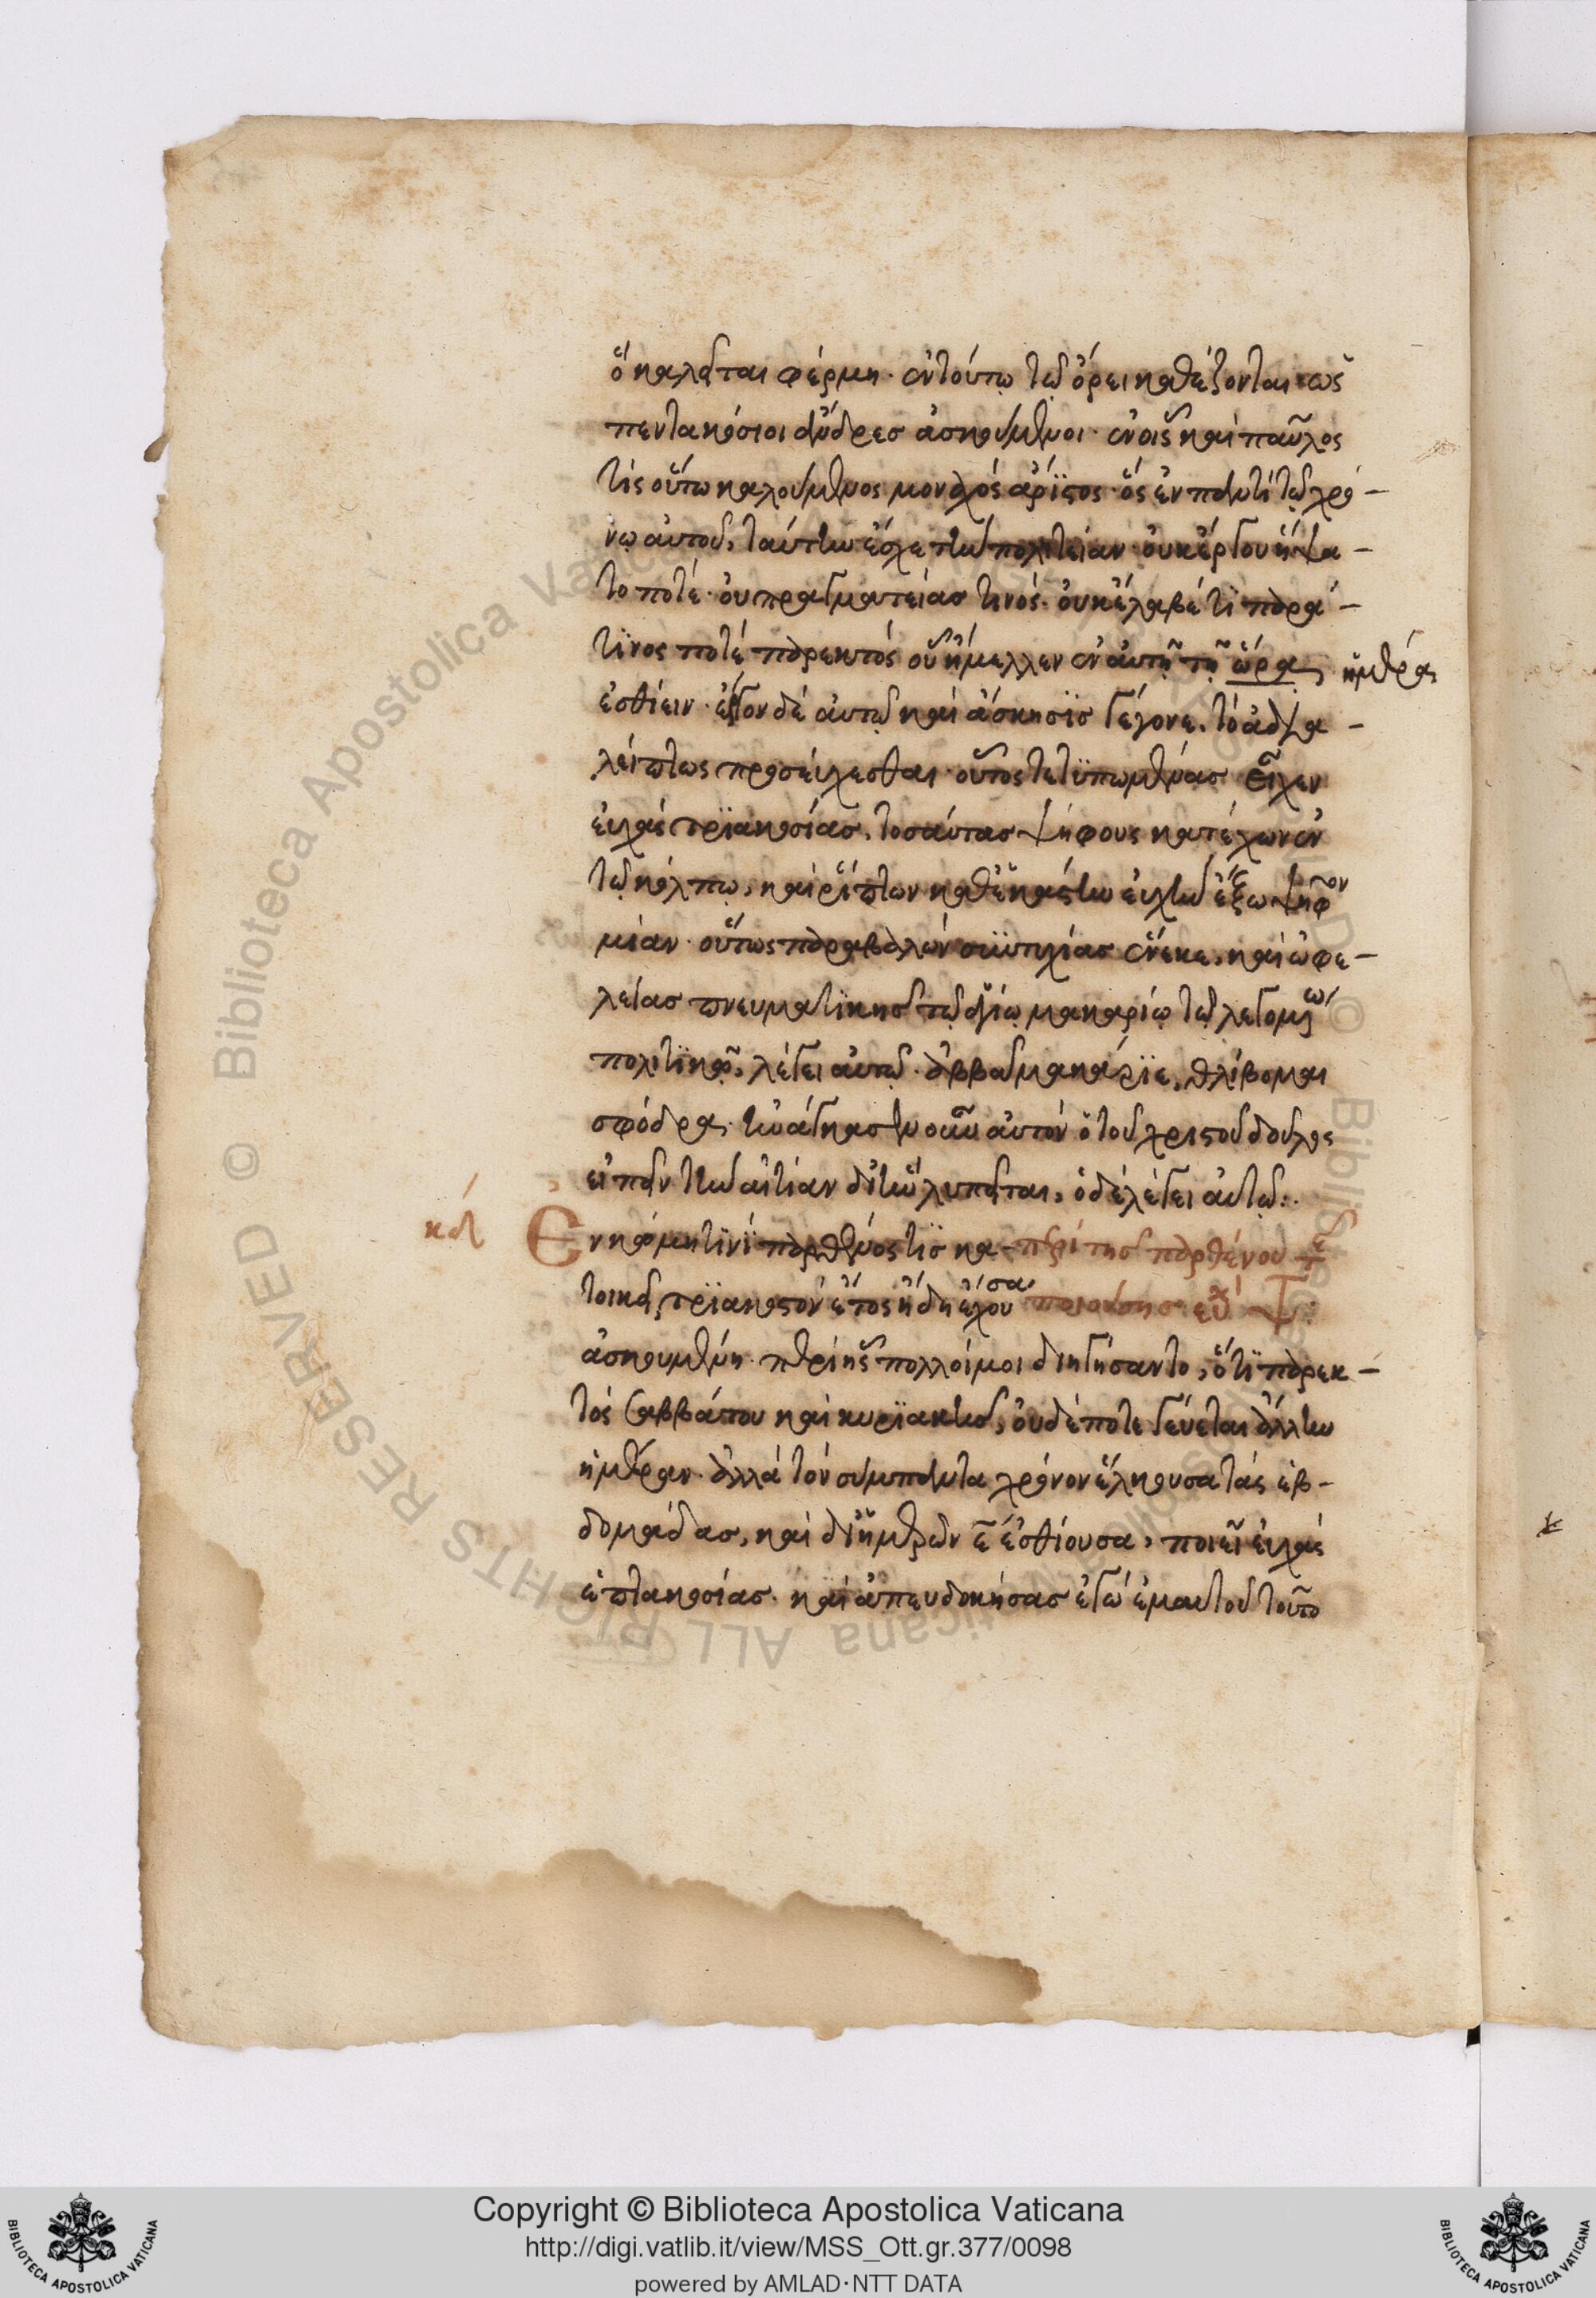 ὃ καλεῖται φέρμη· ἐν τούτω τῶ ὄρει καθέζονται ὡς
πεντακόσιοι ἄνδρες ἀσκούμενοι· ἐν οἷς καὶ παῦλος
τίς οὕτω καλούμενος μοναχὸς ἄριστος· ὃς ἐν παντὶ τῶ χρό-
νω αὐτοῦ, ταύτην ἔσχε τὴν πολιτείαν· οὐκ ἔργου ἥψα-
το ποτέ· οὐ πραγματείας τινός· οὐκ ἔλαβέ τι παρά-
τινος ποτέ παρεκτός οὗ ἤμελλεν ἐν αὐτῆ τῆ ὥρα ἡμέρα
ἐσθίειν· ἔργον δὲ αὐτῶ καὶ ἄσκησις γέγονε, τὸ ἀδια-
λείπτως προσεύχεσθαι· οὗτος τετυπωμένας εἶχεν
εὐχὰς τριακοσίας, τοσαύτας ψήφους κατέχων ἐν
τῶ κόλπω, καὶ ρίπτων καθ' ἑκάστην εὐχὴν ἔξω ψῆφον
μίαν· οὗτος παραβαλὼν συντυχίας ἕνεκε, καὶ ὠφε-
λείας πνευματικῆς τῶ ἁγίω μακαρίω τῶ λεγομένω
πολιτικῶ, λέγει αὐτῶ· ἀββᾶ μακάριε, θλίβομαι
σφόδρα· ἠνάγκασεν οὖν αὐτὸν ὁ τοῦ χριστοῦ δοῦλος
εἰπεῖν τὴν αἰτίαν δι' ἣν λυπεῖται, ὁ δὲ λέγει αὐτῶ:·
κα Ἐν κώμη τινὶ παρθένος τίς κα- περὶ τῆς παρθένου τῆς
τοικεῖ, τριακοστὸν ἔτος ἤδη ἔχουσα ποιούσης εὐχὰς ψ:
ἀσκουμένη· περὶ ἧς πολλοί μοι διηγήσαντο, ὅτι παρεκ-
τὸς σαββάτου καὶ κυριακῆς, οὐδέποτε γεύεται ἄλλην
ἡμέραν· ἀλλὰ τὸν σύμπαντα χρόνον ἕλκουσα τὰς ἑβ-
δομάδας, καὶ δι' ἡμερῶν ε ἐσθίουσα, ποιεῖ εὐχὰς
ἑπτακοσίας· καὶ ἀπευδοκήσας ἐγὼ ἐμαυτοῦ τοῦτο
Copyright © Biblioteca Apostolica Vaticana
http://digi.vatlib.it/view/MSS_Ott.gr.377/0098
powered by AMLAD·NTT DATA
BIBLIOTECA APOSTOLICA VATICANA
BIBLIOTECA APOSTOLICA VATICANA